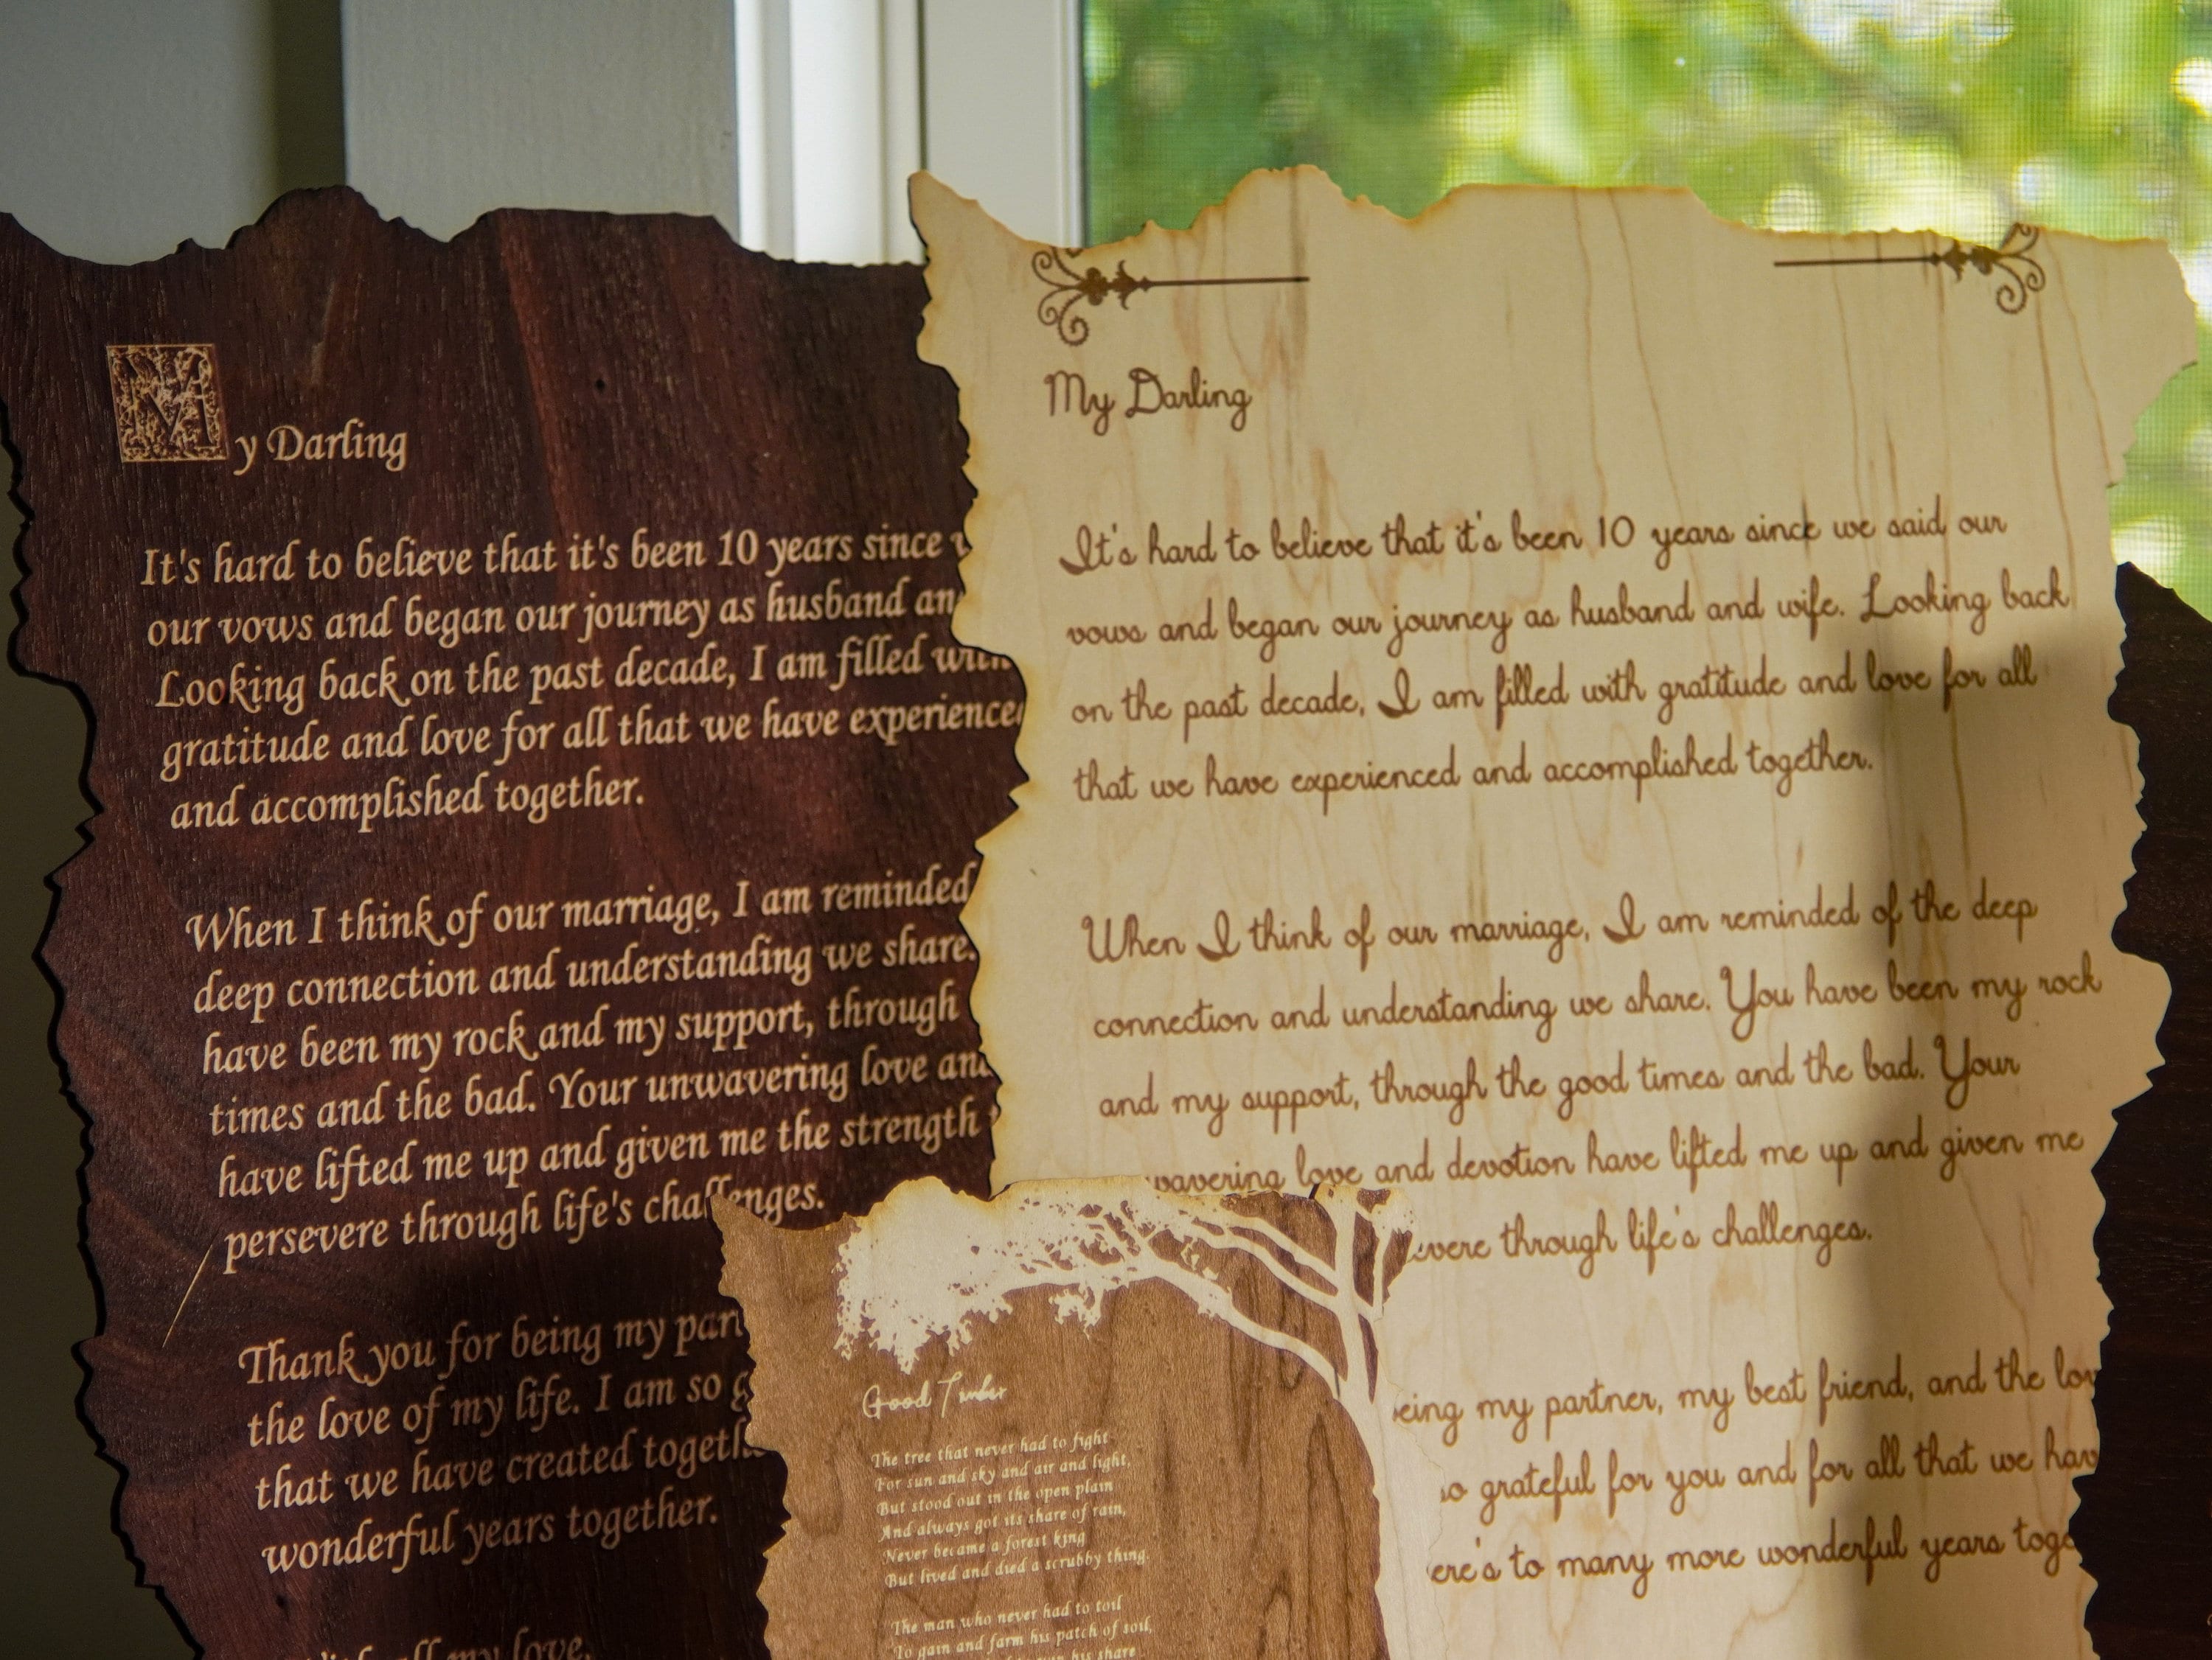 My Darling
It's hard to believe that it's been 10 years since
our vows and began our journey as husband
Looking back on the past decade, I am filled with
gratitude and love for all that we have experience
and accomplished together.
When I think of our marriage, I am reminded
deep connection and understanding we share.
have been my rock and my support, through
times and the bad. Your unwavering love and
have lifted me up and given me the strength
persevere through life's challenges.
Thank you for being my
the love of my life. I am so
that we have created
wonderful years together.
all my love,
My Darling
It's hard to believe that it's been 10 years since we said our
vows and began our journey as husband and wife. Looking back
on the past decade, I am filled with gratitude and love for all
that we have experienced and accomplished together.
When I think of our marriage, I am reminded of the deep
connection and understanding we share. You have been my rock
and my support, through the good times and the bad. Your
wavering love and devotion have lifted me up and given me
through life's challenges.
eing my partner, my best friend, and the
so grateful for you and for all that we hav
ere's to many more wonderful years
Good Timber
The tree that never had to fight
For sun and sky and air and light,
But stood out in the open plain
And always got its share of rain,
Never became a forest king
But lived and died a scrubby thing.
The man who never had to toil
To gain and farm his patch of soil,
his share